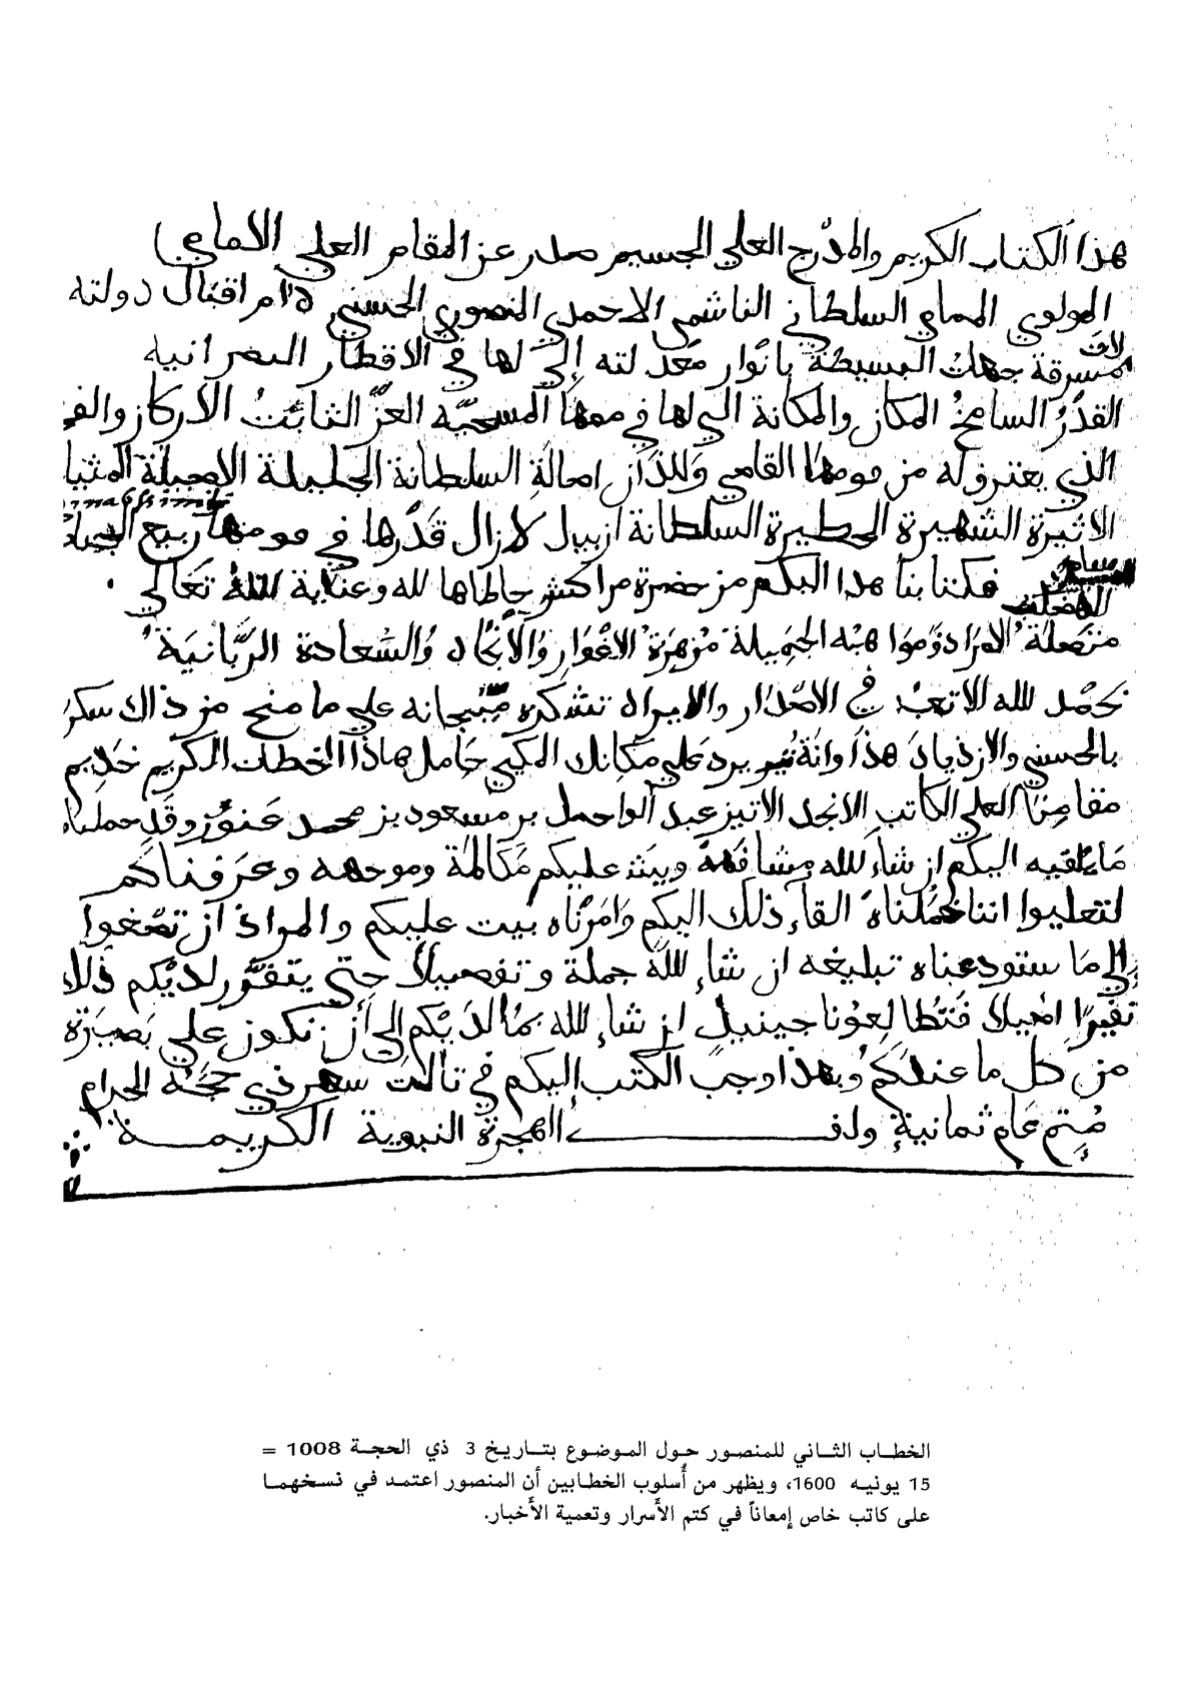 هذا الكتاب الكريم والمدرج العلي الجسيم صدر عن المقام العلي الامامي
المولوي السلطاني الاحمدي المنصوري الحسني دام اقبال دولته
مشرقة جهات البسيطة بانوار معدلته إلى لها في الاقطار النصرانية
القدر السامخ المكان والمكانة التي لها في المسحية العز الثابت الاركان
الذي من القاصي والدان اصالة السلطانة الجليلة الاصيلة المثيلة
الاثيرة الشهيرة الخطيرة السلطانة ازبيل لازال قدرها في قومها ربيع
فكتابنا هذا اليكم من حضرة مراكش حاطها الله وعناية الله تعالى
متصلة الامراد ومواهبه الجميلة مزهرة الاغوار والانجاد والسعادة الربانية
نحمد الله في الاصدار والايراد نشكره سبحانه على ما منح من ذاك
بالحسنى والازدياد هذا وانه يرد على مكانك المكين حامل هاذا الخطاب الكريم خديم
مقامنا العلي الكاتب الانجد الاثير عبد الواحد بن مسعود بن محمد عنون وقد حملناه
ما يلقيه اليكم ان شاء الله مشافهة ويبث عليكم مكالمة وموجهة وعرفناكم
لتعلموا اننا حملناه القاء ذلك اليكم وامرناه يبث عليكم والمراد ان تصغوا
إلى ما ستودعناه تبليغه ان شاء الله جملة وتفصيلا حتى يتقرر لديكم ذلك
اصيلا فتطالعونا ان شاء الله بما لديكم إلى أن نكون على بصيرة
من كل ما عندكم وبهذا وجب الكتب إليكم في ثالث شهر ذي حجة الحرام
متم عام ثمانية ولف الهجرة النبوية الكريمة
الخطاب الثاني للمنصور حول الموضوع بتاريخ 3 ذي الحجة 1008 =
15 يونيه 1600، ويظهر من أسلوب الخطابين أن المنصور اعتمد في نسخهما
على كاتب خاص إمعاناً في كتم الأسرار وتعمية الأخبار.